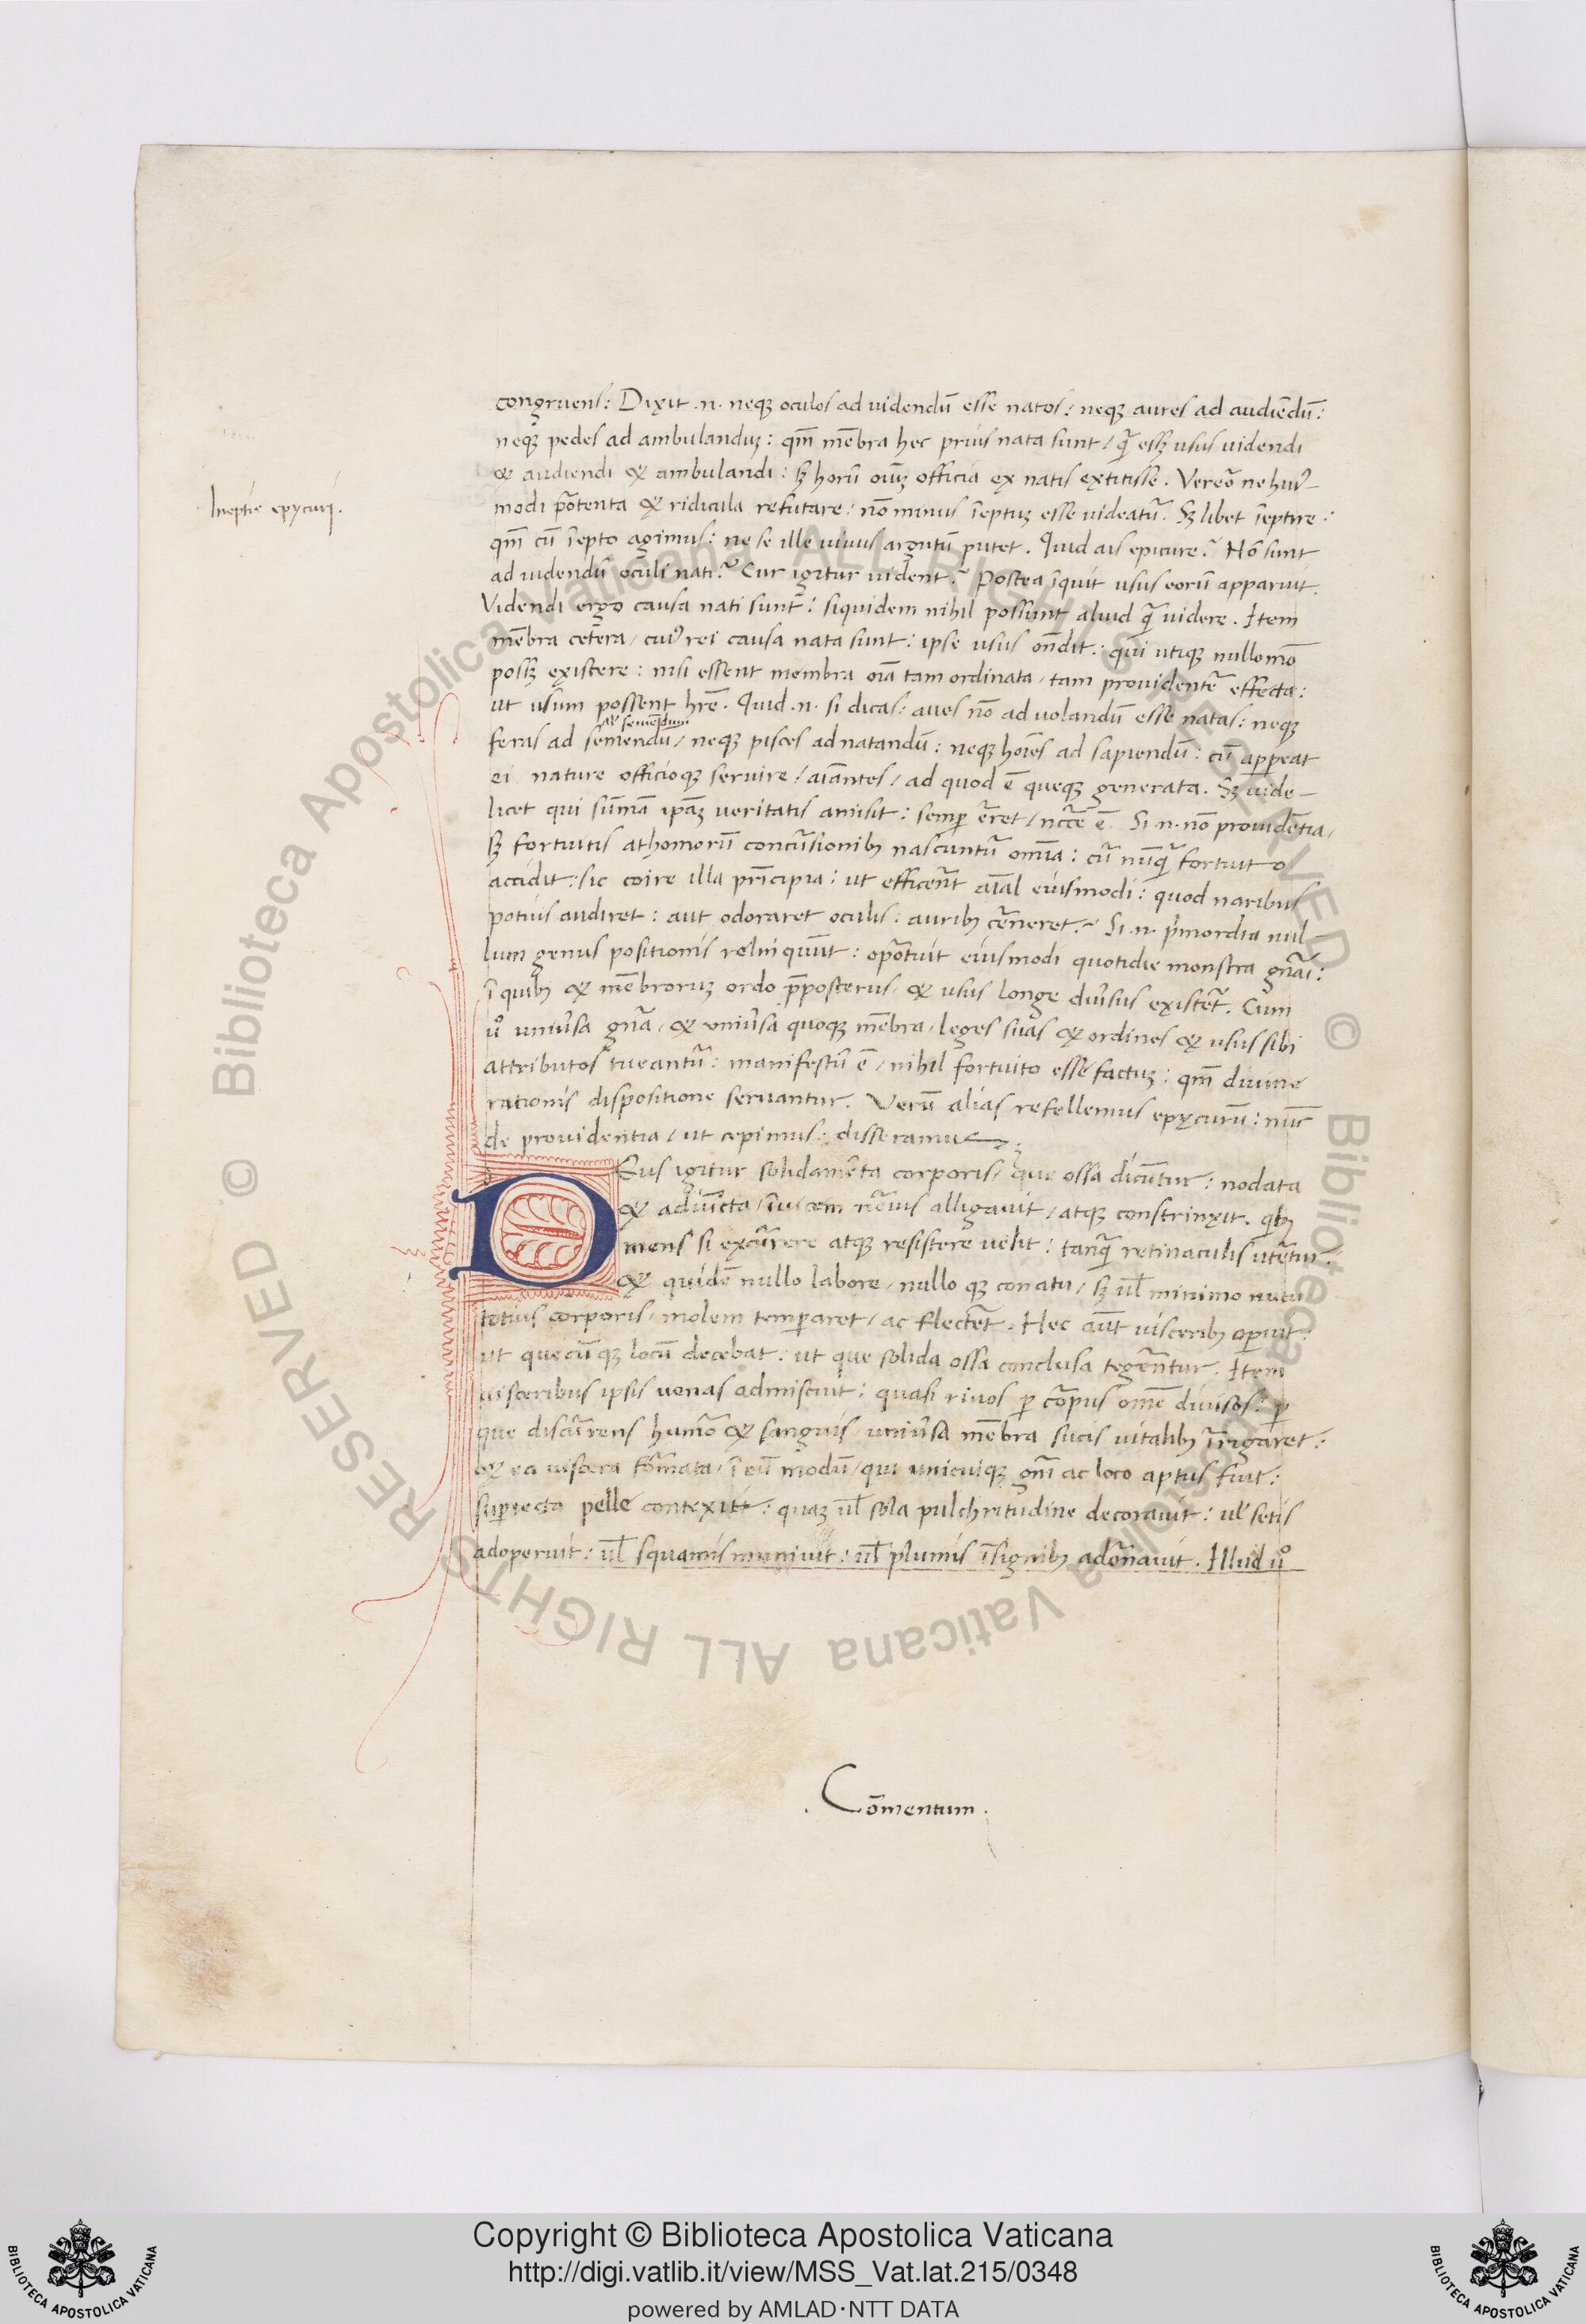 congruens: Dixit .n. neqꝫ oculos ad uidendū esse natos: neqꝫ aures ad audiēdū:
neqꝫ pedes ad ambulanduꝫ: qm̄ mēbra hec prius nata sunt / qᷓ essꝫ usus uidendi
& audiendi & ambulandi: sꝫ horū oīuꝫ officia ex natis extitisse. Vereor̄ ne huiꝰ-
modi p̄otenta & ridicula refutare / nō minus īeptuꝫ esse uideatur̄. Sꝫ libet īeptire:
Ineptie epycurj.
qm̄ cū īepto agimus: ne se ille nimis argutū putet. Quid ais epicure? Nō sunt
ad uidendū oculi nati? Cur igitur uident? Postea īquit usus eorū apparuit.
Videndi ergo causa nati sunt: siquidem nihil possunt aliud qᷓ uidere. Item
mēbra cetera / cuiꝰ rei causa nata sunt: ipse usus on̄dit: qui utique nullo mō
possꝫ existere: nisi essent membra oīa tam ordinata / tam prouidenter̄ effecta:
ut usum possent hr̄e. Quid .n. si dicas: aues nō ad uolandū esse natas: neqꝫ
al' semēdum
feras ad semendū / neqꝫ pisces ad natandū: neqꝫ hoīes ad sapiendū: cū appareat
ei nature officioqꝫ seruire / aīantes / ad quod ē queqꝫ generata. Sꝫ uide-
licet qui sūmā ipāꝫ ueritatis amisit: semp̄ erret / nc̄ce ē. Si .n. nō prouidētia /
sꝫ fortuitis athomorū concursionibꝫ nascuntur̄ omīa: cur̄ nūqᷓ fortuito
accidit: sic coire illa prīcipia: ut efficerēt aīal eiusmodi: quod naribus
potius audiret: aut odoraret oculis: auribꝫ cerneret? Si .n. p̄mordia nul-
lum genus positionis relinquūt: oportuit eiusmodi quotidie monstra gn̄ari:
ī quibꝫ & mēbroruꝫ ordo p̄posterus / & usus longe diuersus existeret. Cum
uͦ uniuersa gn̄a / & uniuersa quoqꝫ mēbra / leges suas & ordines & usus sibi
attributos tueantur̄: manifestū ē / nihil fortuito esse factuꝫ: qm̄ diuine
rationis dispositione seruantur. Verū alias refellemus epycurū: nūc
de prouidentia / ut cepimus: disseramus.
DEus igitur solidamēta corporis / que ossa dicūtur: nodata
& adiūcta / īuicem neruis alligauit / atqꝫ constrinxit. qbꝫ
mens si excurrere atqꝫ resistere uelit: tanqᷓ retinaculis uteretur:
& quidē nullo labore / nullo qꝫ conatu / sꝫ ul̄ minimo nutu
totius corporis / molem temperaret / ac flecteret. Hec aūt uisceribꝫ operuit:
ut quecūqꝫ locū decebat: ut que solida ossa conclusa tegerentur. Item
uisceribus ipsis uenas admiscuit: quasi riuos p̄ corpus om̄e diuisos: p̄
que discurrens humor & sanguis / uniuersa mēbra sucis uitalibꝫ irrigaret:
& ea uiscera formata / ī eū modū / qui unicuiqꝫ gn̄i ac loco aptus fuit:
superiecta pelle contexit: quaꝫ ul̄ sola pulchritudine decorauit: ul̄ setis
adoperuit: ul̄ squamis muniuit: ul̄ plumis īsignibꝫ adornauit. Illud uͦ
. Cōmentum.
Copyright © Biblioteca Apostolica Vaticana
http://digi.vatlib.it/view/MSS_Vat.lat.215/0348
powered by AMLAD·NTT DATA
BIBLIOTECA APOSTOLICA VATICANA
BIBLIOTECA APOSTOLICA VATICANA
© Biblioteca Apostolica Vaticana ALL RIGHTS RESERVED
© Biblioteca Apostolica Vaticana ALL RIGHTS RESERVED